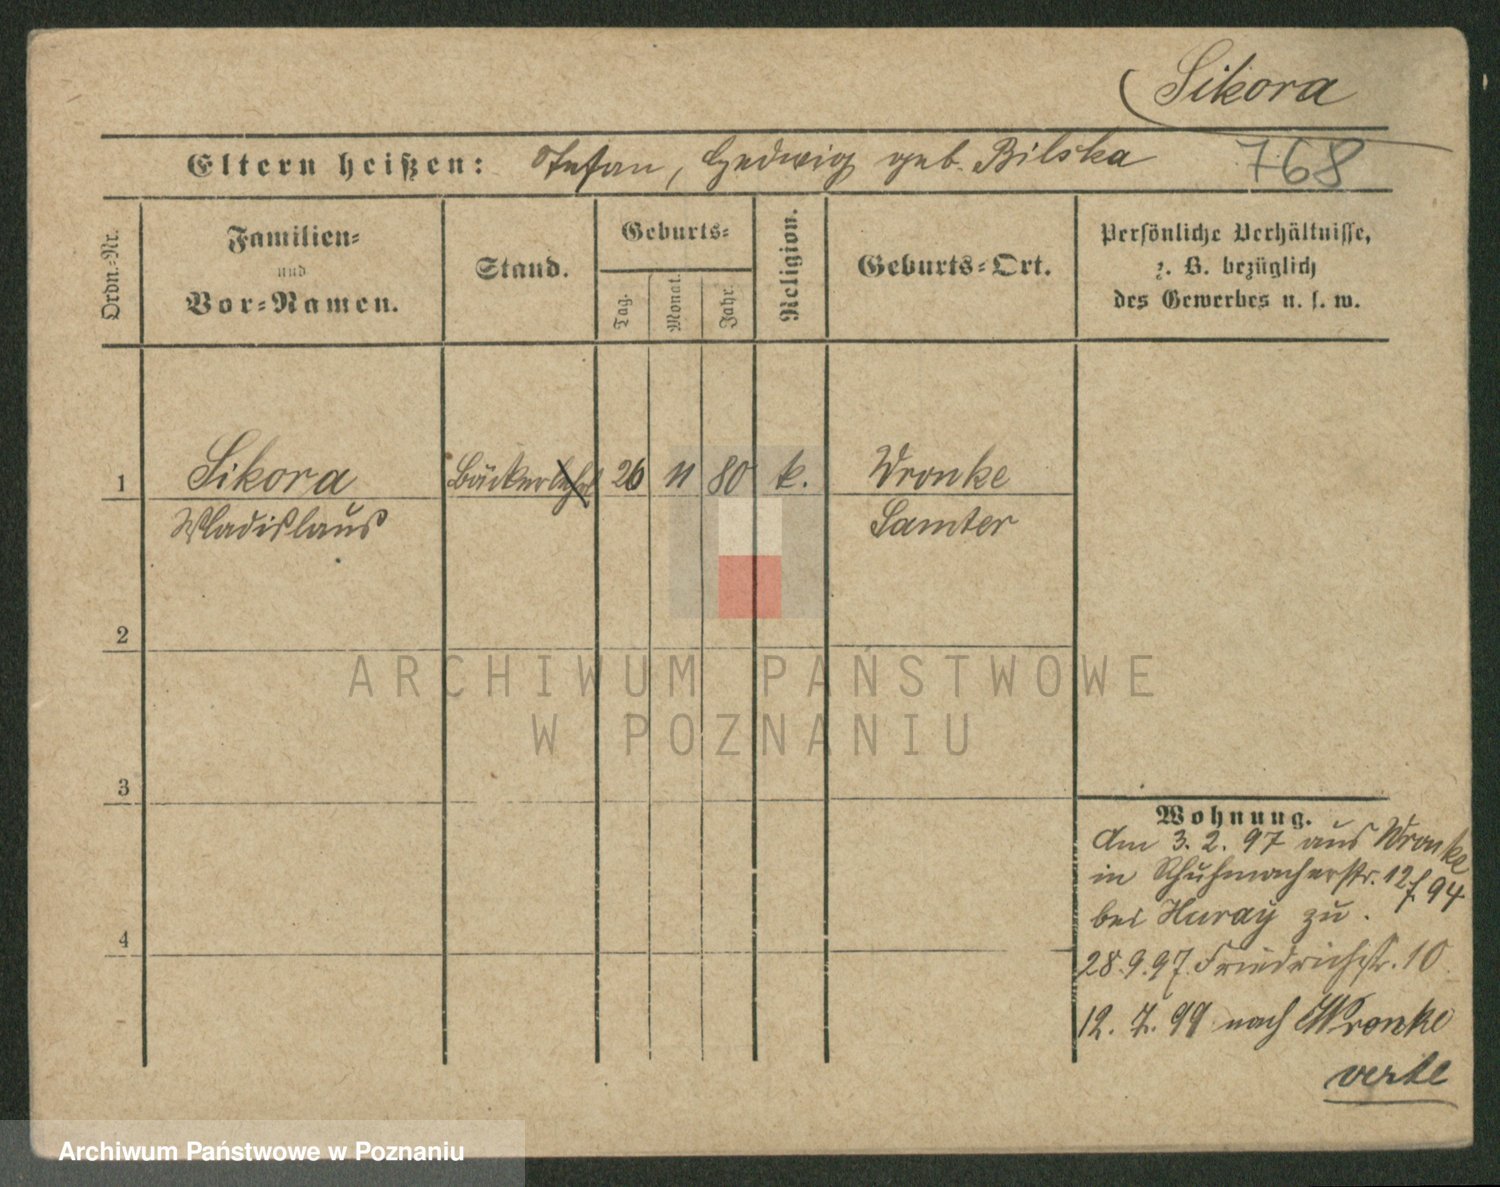 Sikora
Eltern heißen: Stefan, Hedwig geb. Bilska 768
Ordn.-Nr.
Familien-
und
Vor-Namen.
Stand.
Geburts-
Tag.
Monat.
Jahr.
Religion.
Geburts-Ort.
Persönliche Verhältnisse,
z. B. bezüglich
des Gewerbes u. s. w.
1 Sikora Bäckerlehrl 26 11 80 k. Wronke
Wladislaus Samter
2
ARCHIWUM PAŃSTWOWE
W POZNANIU
3
Wohnung.
Am 3. 2. 97 aus Wronke
in Schuhmacherstr. 12 f 94
bei Huray zu.
4
28. 9. 97. Friedrichstr. 10
12. 7. 99 nach Wronke
verte
Archiwum Państwowe w Poznaniu